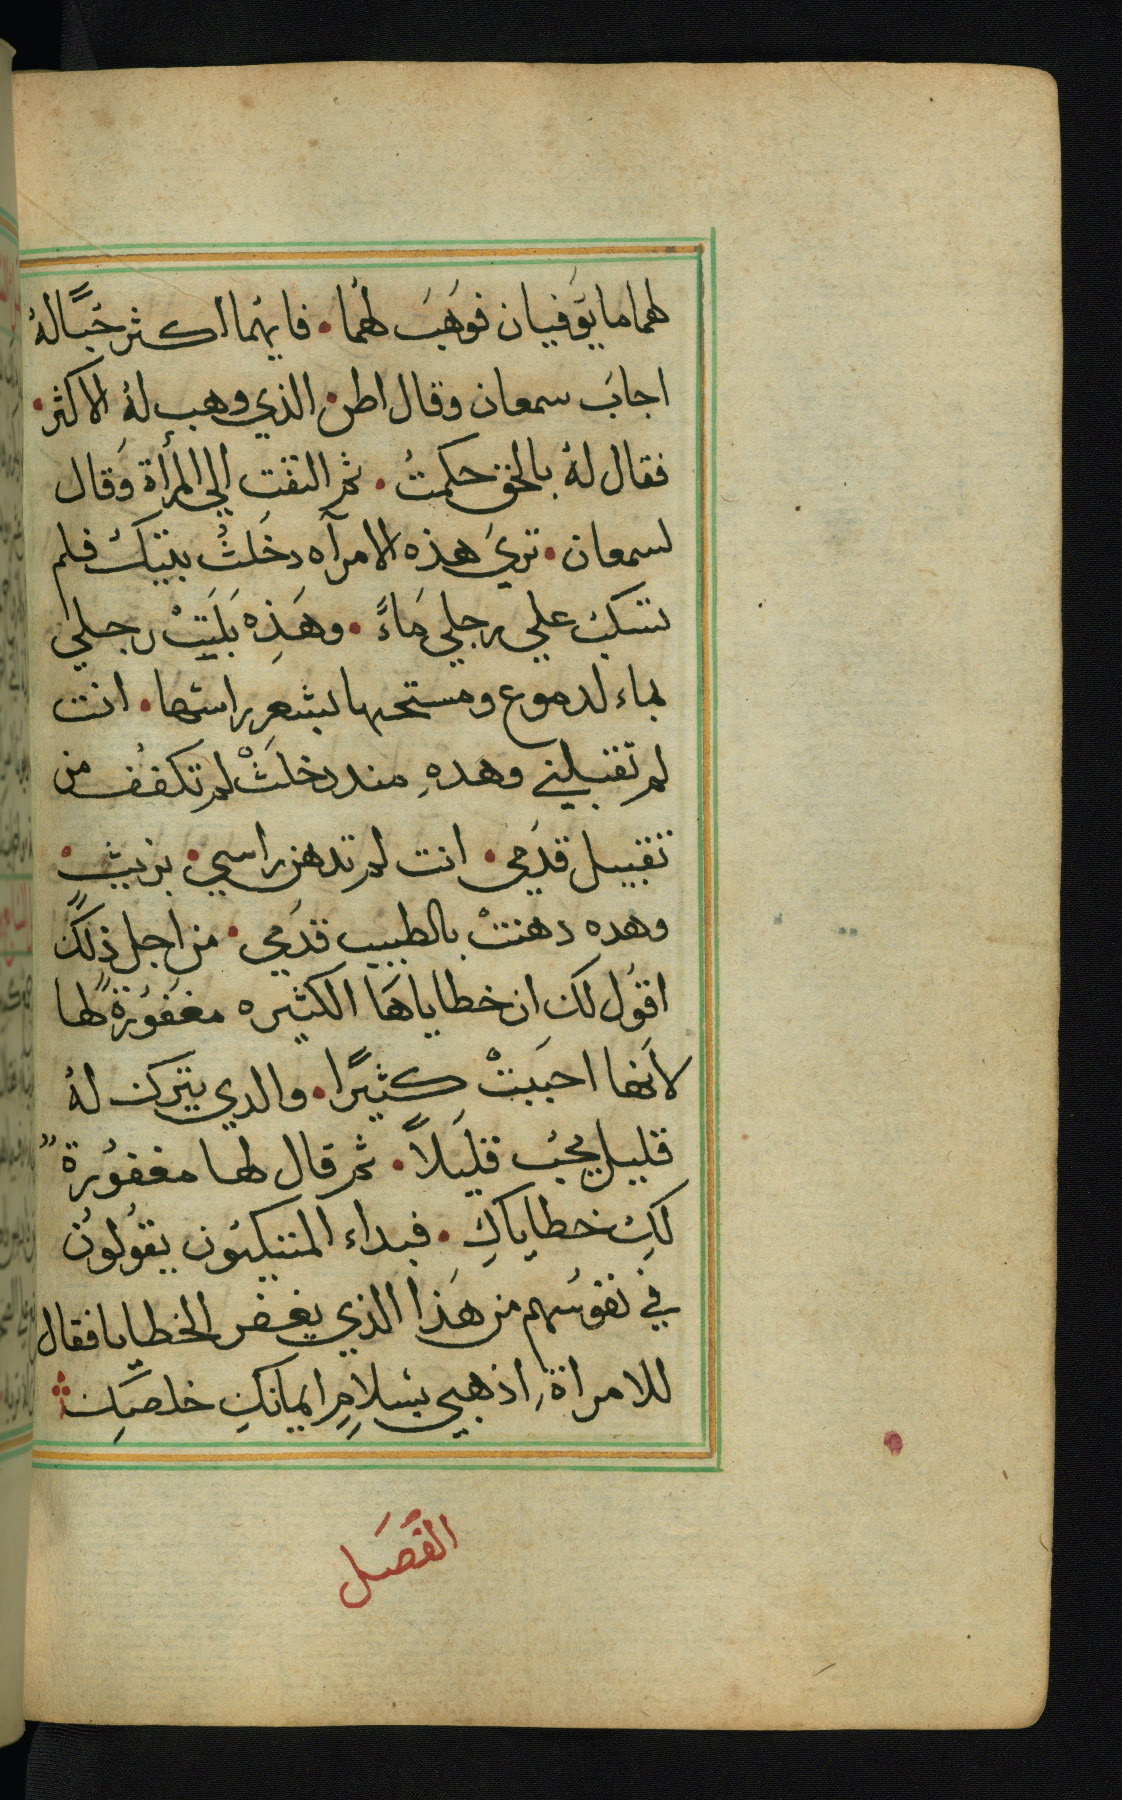 لهما ما يوَفيان فوَهَبَ لهُما • فايهُما اكثر حُبًّا لهُ
اجابَ سمعان وقال اظن الذي وهب لهُ الاكثر •
فقال لهُ بالحق حكمتُ • ثم التفت الي المرأة وَقال
لسمعان • تريَ هذه الامرآه دخَلتُ بيتكُ فلم
تسكبُ علي رجلي مَاءً • وهَذِه بَلَتِتْ رجلي
بماء لدموع ومستحها بشعرِ راسُها • انت
لم تقبلني وهدهِ مند دخلَتْ لم تكففُ من
تقبيل قدَمي • انت لم تدهن راسي • بزيتِ •
وهده دهنتْ بالطيب قدَمي • من اجل ذلكَ
اقوُل لكَ ان خطاياهَا الكثيره مغفوُرةً لها
لأنها احبَبتْ كثيرًا • والدي يترك لهُ
قليل يحبُ قليَلاً • ثم قال لها مغفوُرةٌ
لكِ خطاياكِ • فبداء المتيكيُون يقوُلونُ
في نفوسُهم من هَذا الذي يغفر الخطايا فقال
للامراة اذهبي بسَلامٍ ايمانكِ خلصَكِ
الفَصَل